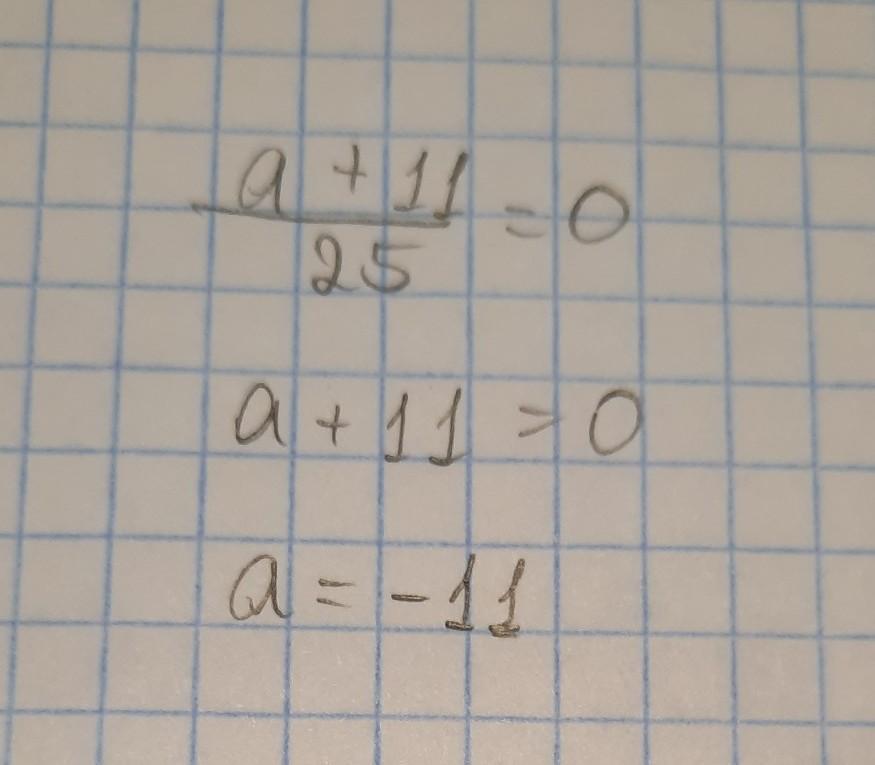 a + 11
25 = 0
a + 11 = 0
a = -11